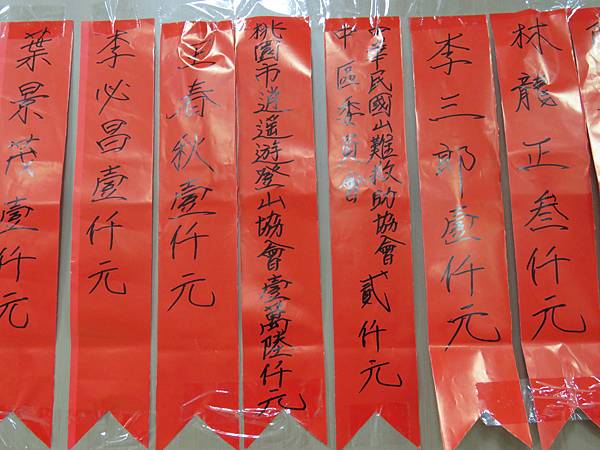 林龍正叁仟元
李三郎壹仟元
中華民國山難救助協會貳仟元
中區委員會
桃園市逍遥遊登山協會壹萬陸仟元
王春秋壹仟元
李必昌壹仟元
葉景茂壹仟元